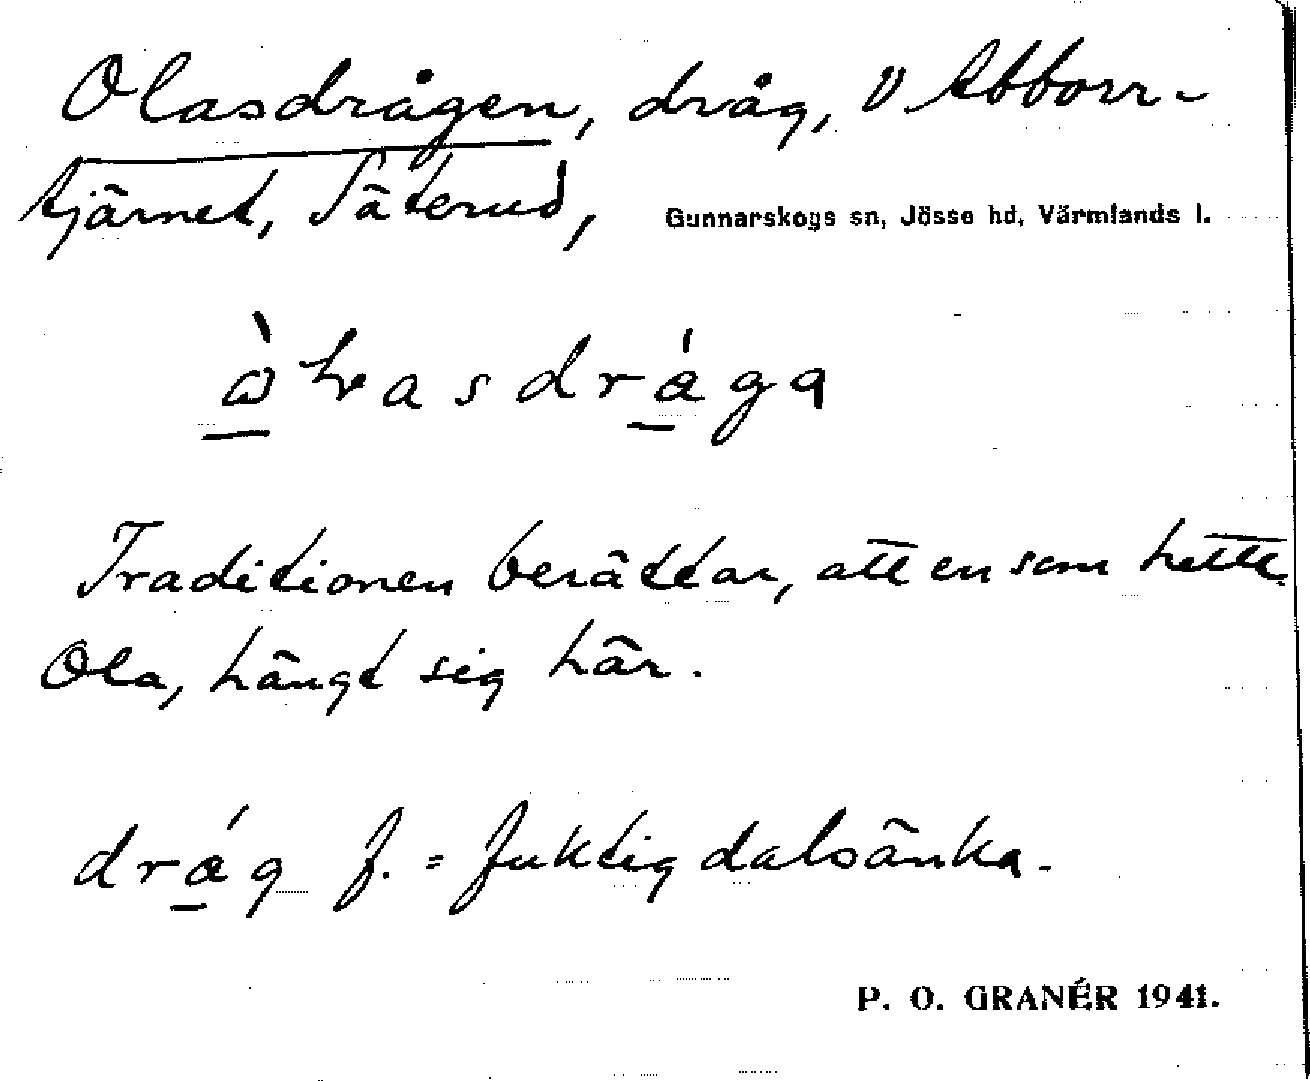 Olasdrågen, dråg, v Abborr-
tjärnet, Säterud, Gunnarskogs sn, Jösse hd, Värmlands l.
Traditionen berättar, att en som hette
Ola, hängt sig här.
dråg f. = fuktig dalsänka.
P. O. GRANÉR 1941.